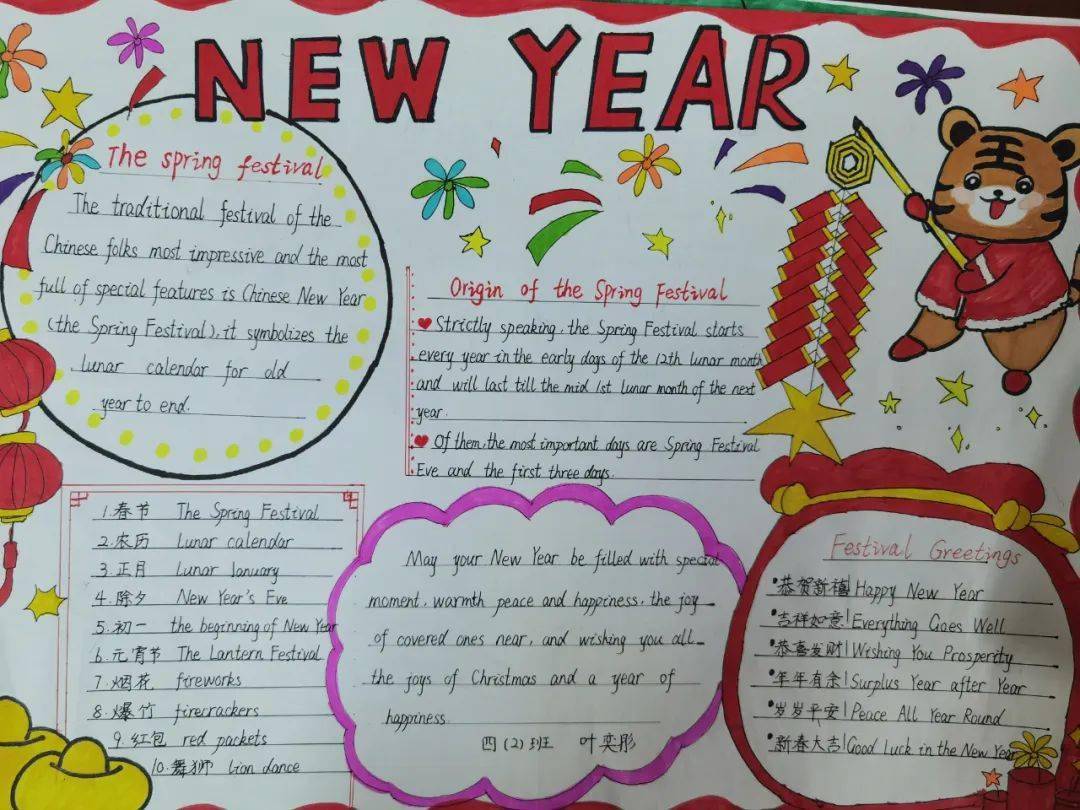 NEW YEAR
The spring festival
The traditional festival of the
Chinese folks most impressive and the most
full of special features is Chinese New Year
(the Spring Festival), it symbolizes the
lunar calendar for old
year to end.
Origin of the Spring Festival
Strictly speaking, the Spring Festival starts
every year in the early days of the 12th lunar month
and will last till the mid 1st lunar month of the next
year.
Of them, the most important days are Spring Festival
Eve and the first three days.
王
1.春节 The Spring Festival
2.农历 Lunar calendar
3.正月 Lunar January
4.除夕 New Year's Eve
5.初一 the beginning of New Year
6.元宵节 The Lantern Festival
7.烟花 fireworks
8.爆竹 firecrackers
9.红包 red packets
10.舞狮 Lion dance
May your New Year be filled with special
moment, warmth peace and happiness, the joy
of covered ones near, and wishing you all
the joys of Christmas and a year of
happiness.
四(2)班 叶奕彤
Festival Greetings
恭贺新禧! Happy New Year
吉祥如意! Everything Goes Well
恭喜发财! Wishing You Prosperity
年年有余! Surplus Year after Year
岁岁平安! Peace All Year Round
新春大吉! Good Luck in the New Year